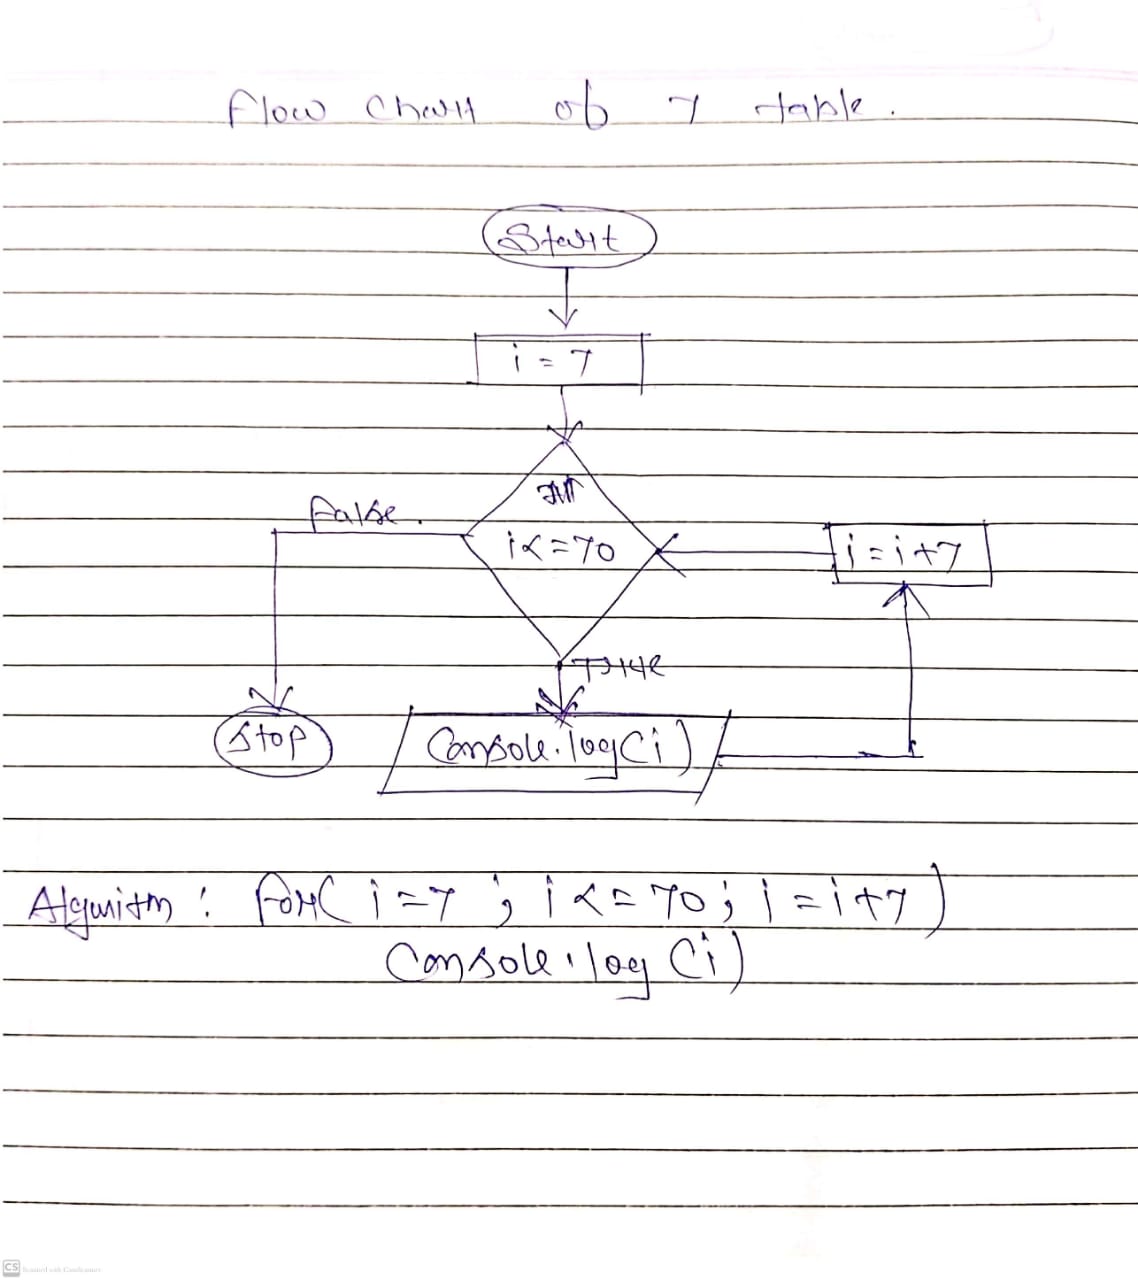 Flow Chart of 7 table.
Start
i = 7
False.
i<=70
i=i+7
True
Stop
Console.log(i)
Algorithm : for( i=7 ; i <= 70; i=i+7)
Console.log(i)
CS Scanned with CamScanner